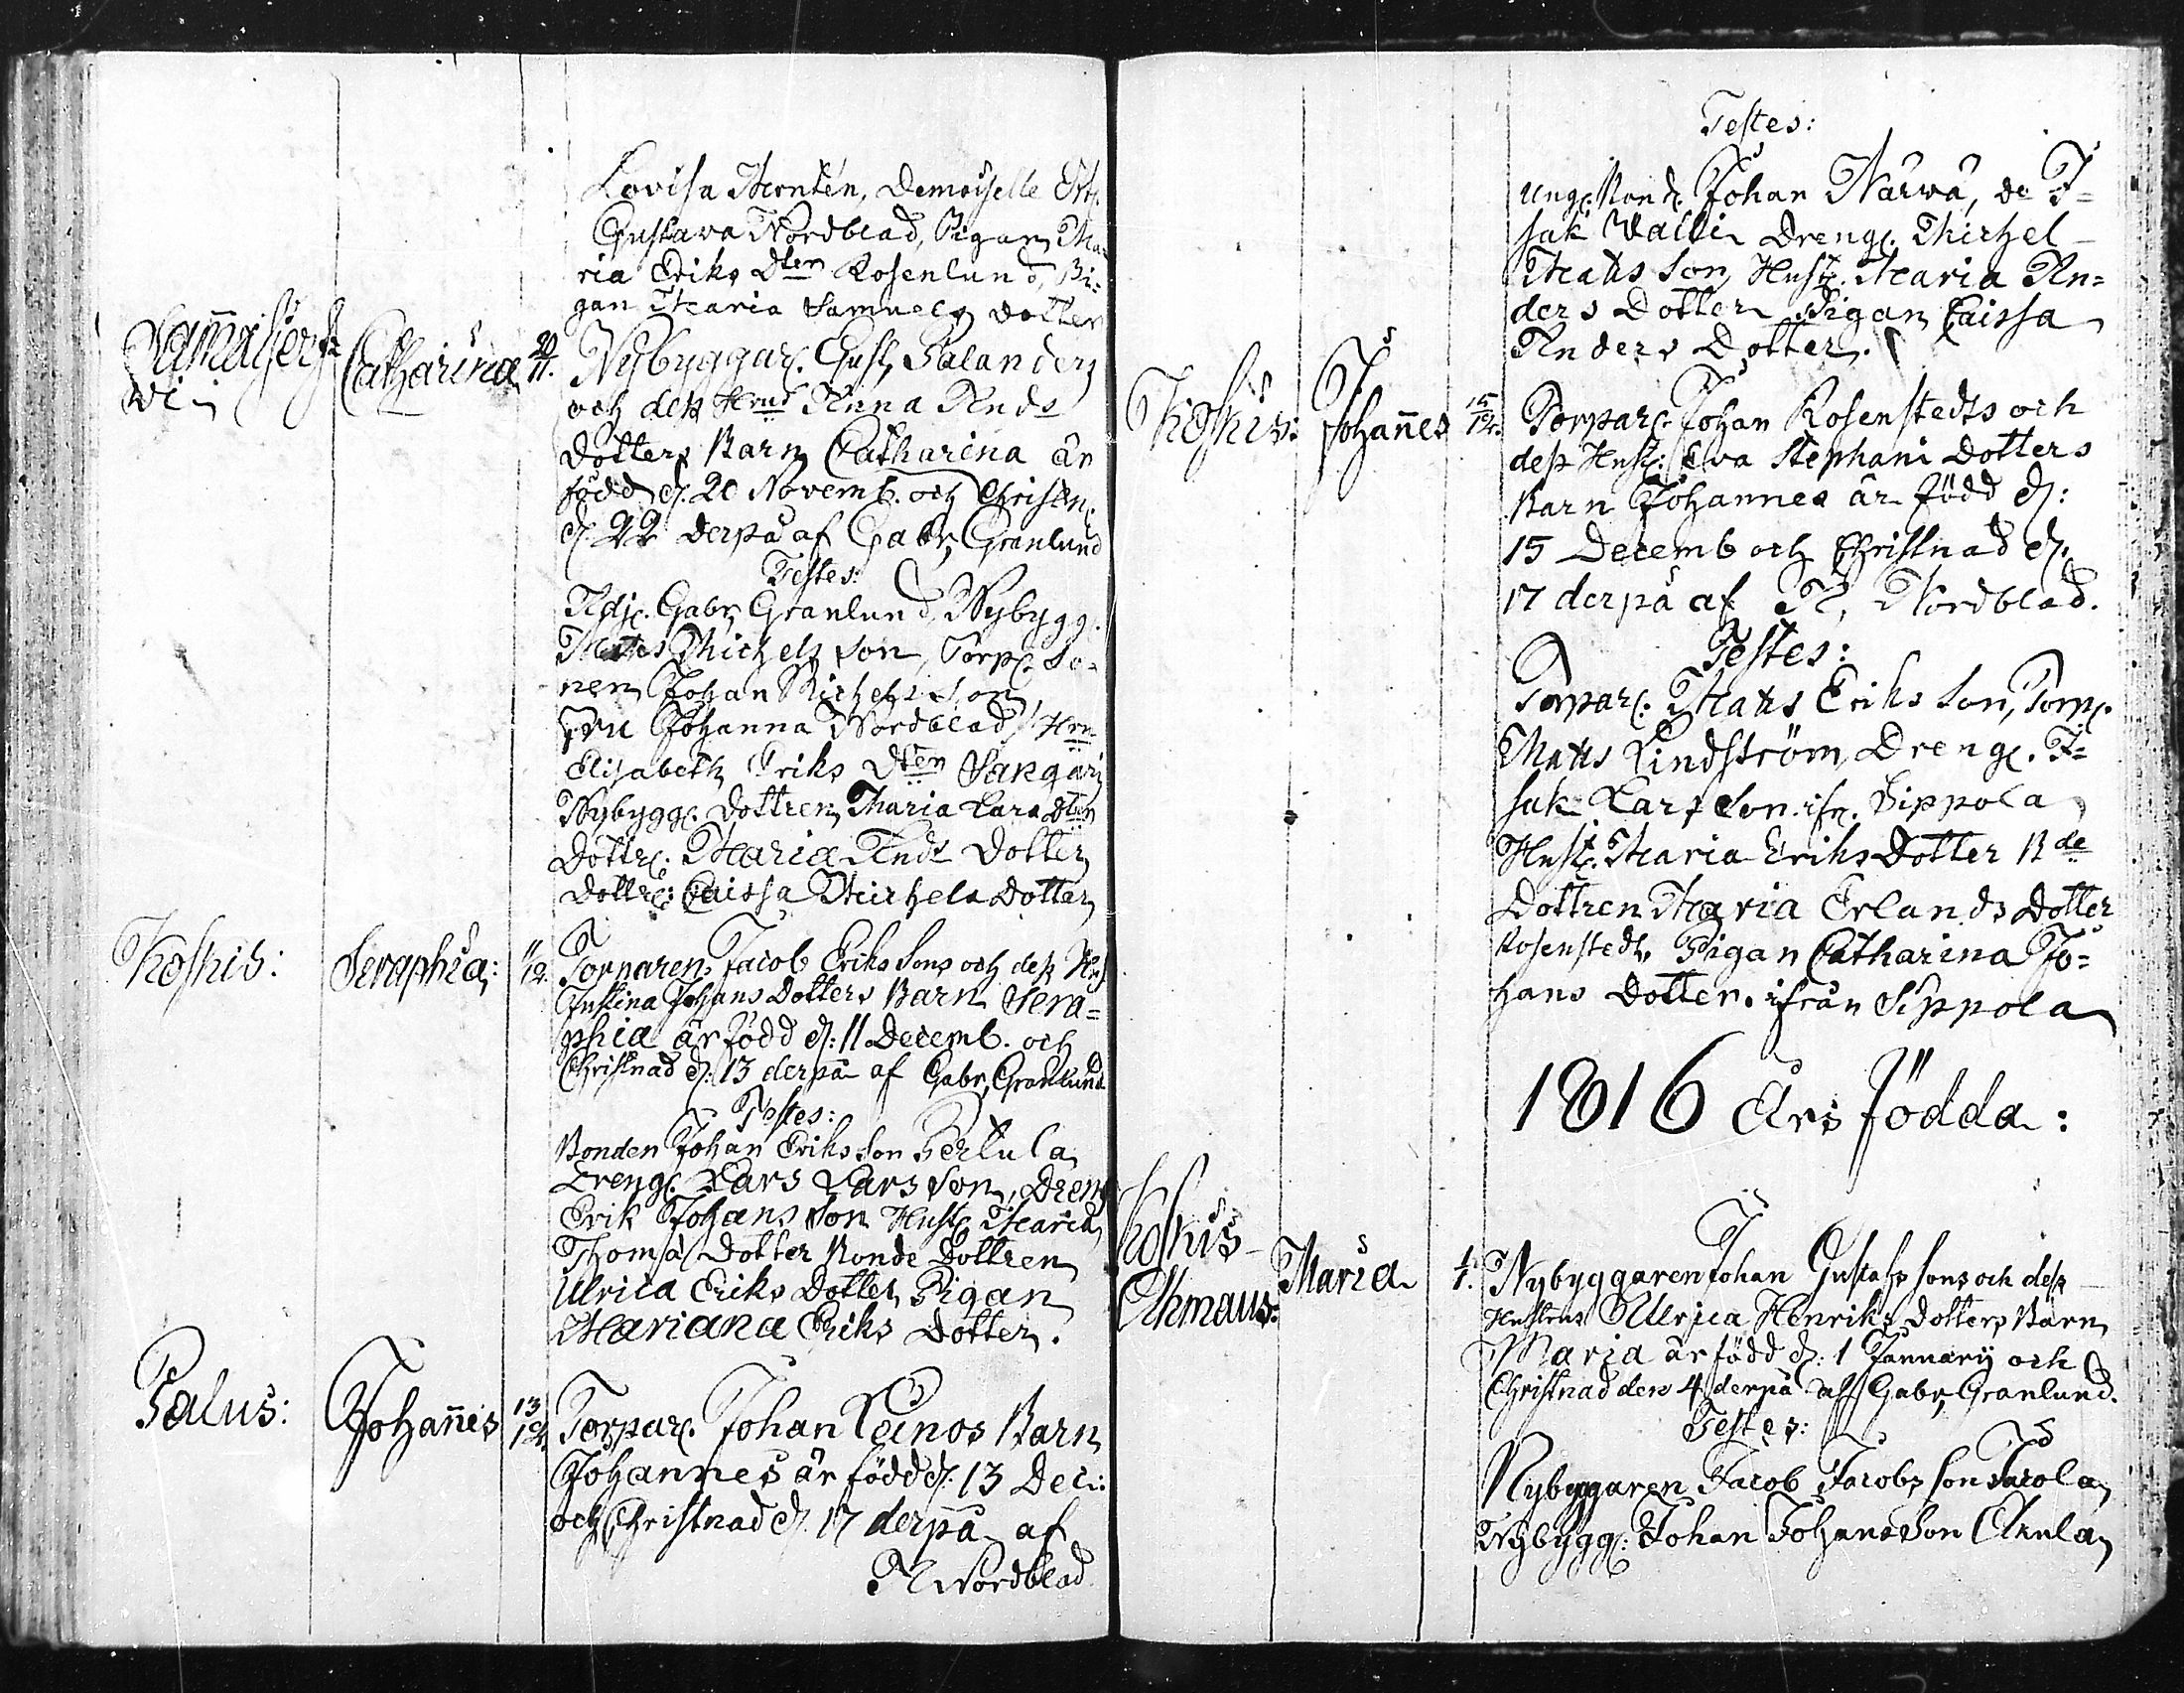 Lovisa Montén, Demoiselle
Gustava Nordblad, Pigan Ma
ria Eriks Dter Rosenlund, Pi=
gan Maria Samuels dotter
Catharina 20/11. Nybyggar. Gust. Salanders
och dess Hrus Anna Ands
Dotters Barn Catharina är
född d. 20 Novemb. och Christn.
d. 22 derpå af Gabr, Granlund
Testes:
Adj. Gabr, Granlund, Nybygg.
Matts Michels son, Torp. So=
nen Johan Michels son,
Fru Johanna Nordblad, Hru
Elisabeth Eriks Dter
Nybygg. Dottren Maria Lars Dter
Dottr. Maria Ands Dotter
Dottr: Caissa Michels Dotter
Koskis: Seraphia: 11/12. Torparen Jacob Eriks Sons och dess Hus
Justina Johans Dotters Barn Sera=
phia är född d: 11 Decemb. och
Christnad d: 13 derpå af Gabr, Granlund
Testes:
Bonden Johan Eriksson Pertula
Dreng. Lars Lars Son, Dreng
Erik Johans son Hust. Maria
Thomas Dotter Bonde Dottren
Ulrica Eriks Dotter, Pigan
Mariana Eriks Dotter.
Palus: Johannes 13/12. Torpar. Johan Leinos Barn
Johannes är född d. 13 Dec:
och Christnad d. 17 derpå af
Nordblad
Testes:
Ung. Bond. Johan Närvä, do I=
sak Dreng. Michel
Matts Son, Hust. Maria An=
ders Dotter Pigan Caissa
Anders Dotter.
Koskis: Johannes 15/12. Torpar. Johan Rosenstedts och
dess Hust: Eva Stephani Dotters
Barn Johannes är född d:
15 Decemb och Christnad d.
17 derpå af Nordblad.
Testes:
Torpar. Matts Eriks Son, Torp.
Matts Lindström, Dreng. I=
sak Lars Son ifr. Sippola
Hust. Maria Eriks Dotter Bde
Dottren Maria Erlands Dotter
Rosenstedt, Pigan Catharina Jo=
hans Dotter. ifrån Sippola
1816 Års födda:
Koskis
Maria 1/1. Nybyggaren Johan Gustafs sons och dess
Hustrus Ulrica Henriks Dotters Barn
Maria är född d: 1 Januarij och
Christnad den 4 derpå af Gabr, Granlund.
Testes:
Nybyggaren Jacob Jacobs son Jacola
Nybygg: Johan Johans Son